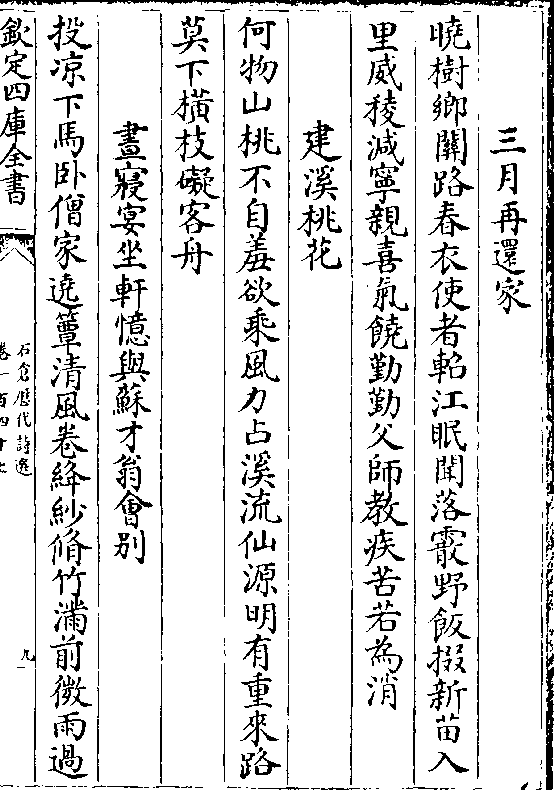 三月再還家
曉樹鄉關路春衣使者軺江眠聞落霰野飯掇新苗入
里威稜減寧親喜氣饒勤勤父師教疾苦若為消
建溪桃花
何物山桃不自羞欲乘風力占溪流仙源明有重來路
莫下橫枝礙客舟
晝寢宴坐軒憶與蘇才翁會别
投凉下馬卧僧家遶簟清風卷絳紗脩竹滿前微雨過
欽定四庫全書
石倉歷代詩選
卷一百四十七
九